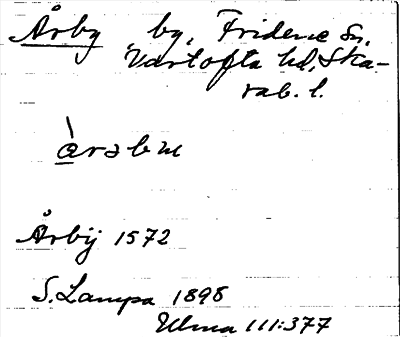 Årby by, Fridene sn,
Vartofta hd, Ska-
rab. l.
àrəbm
Årbÿ 1572
S. Lampa 1898
Ulma 111:377